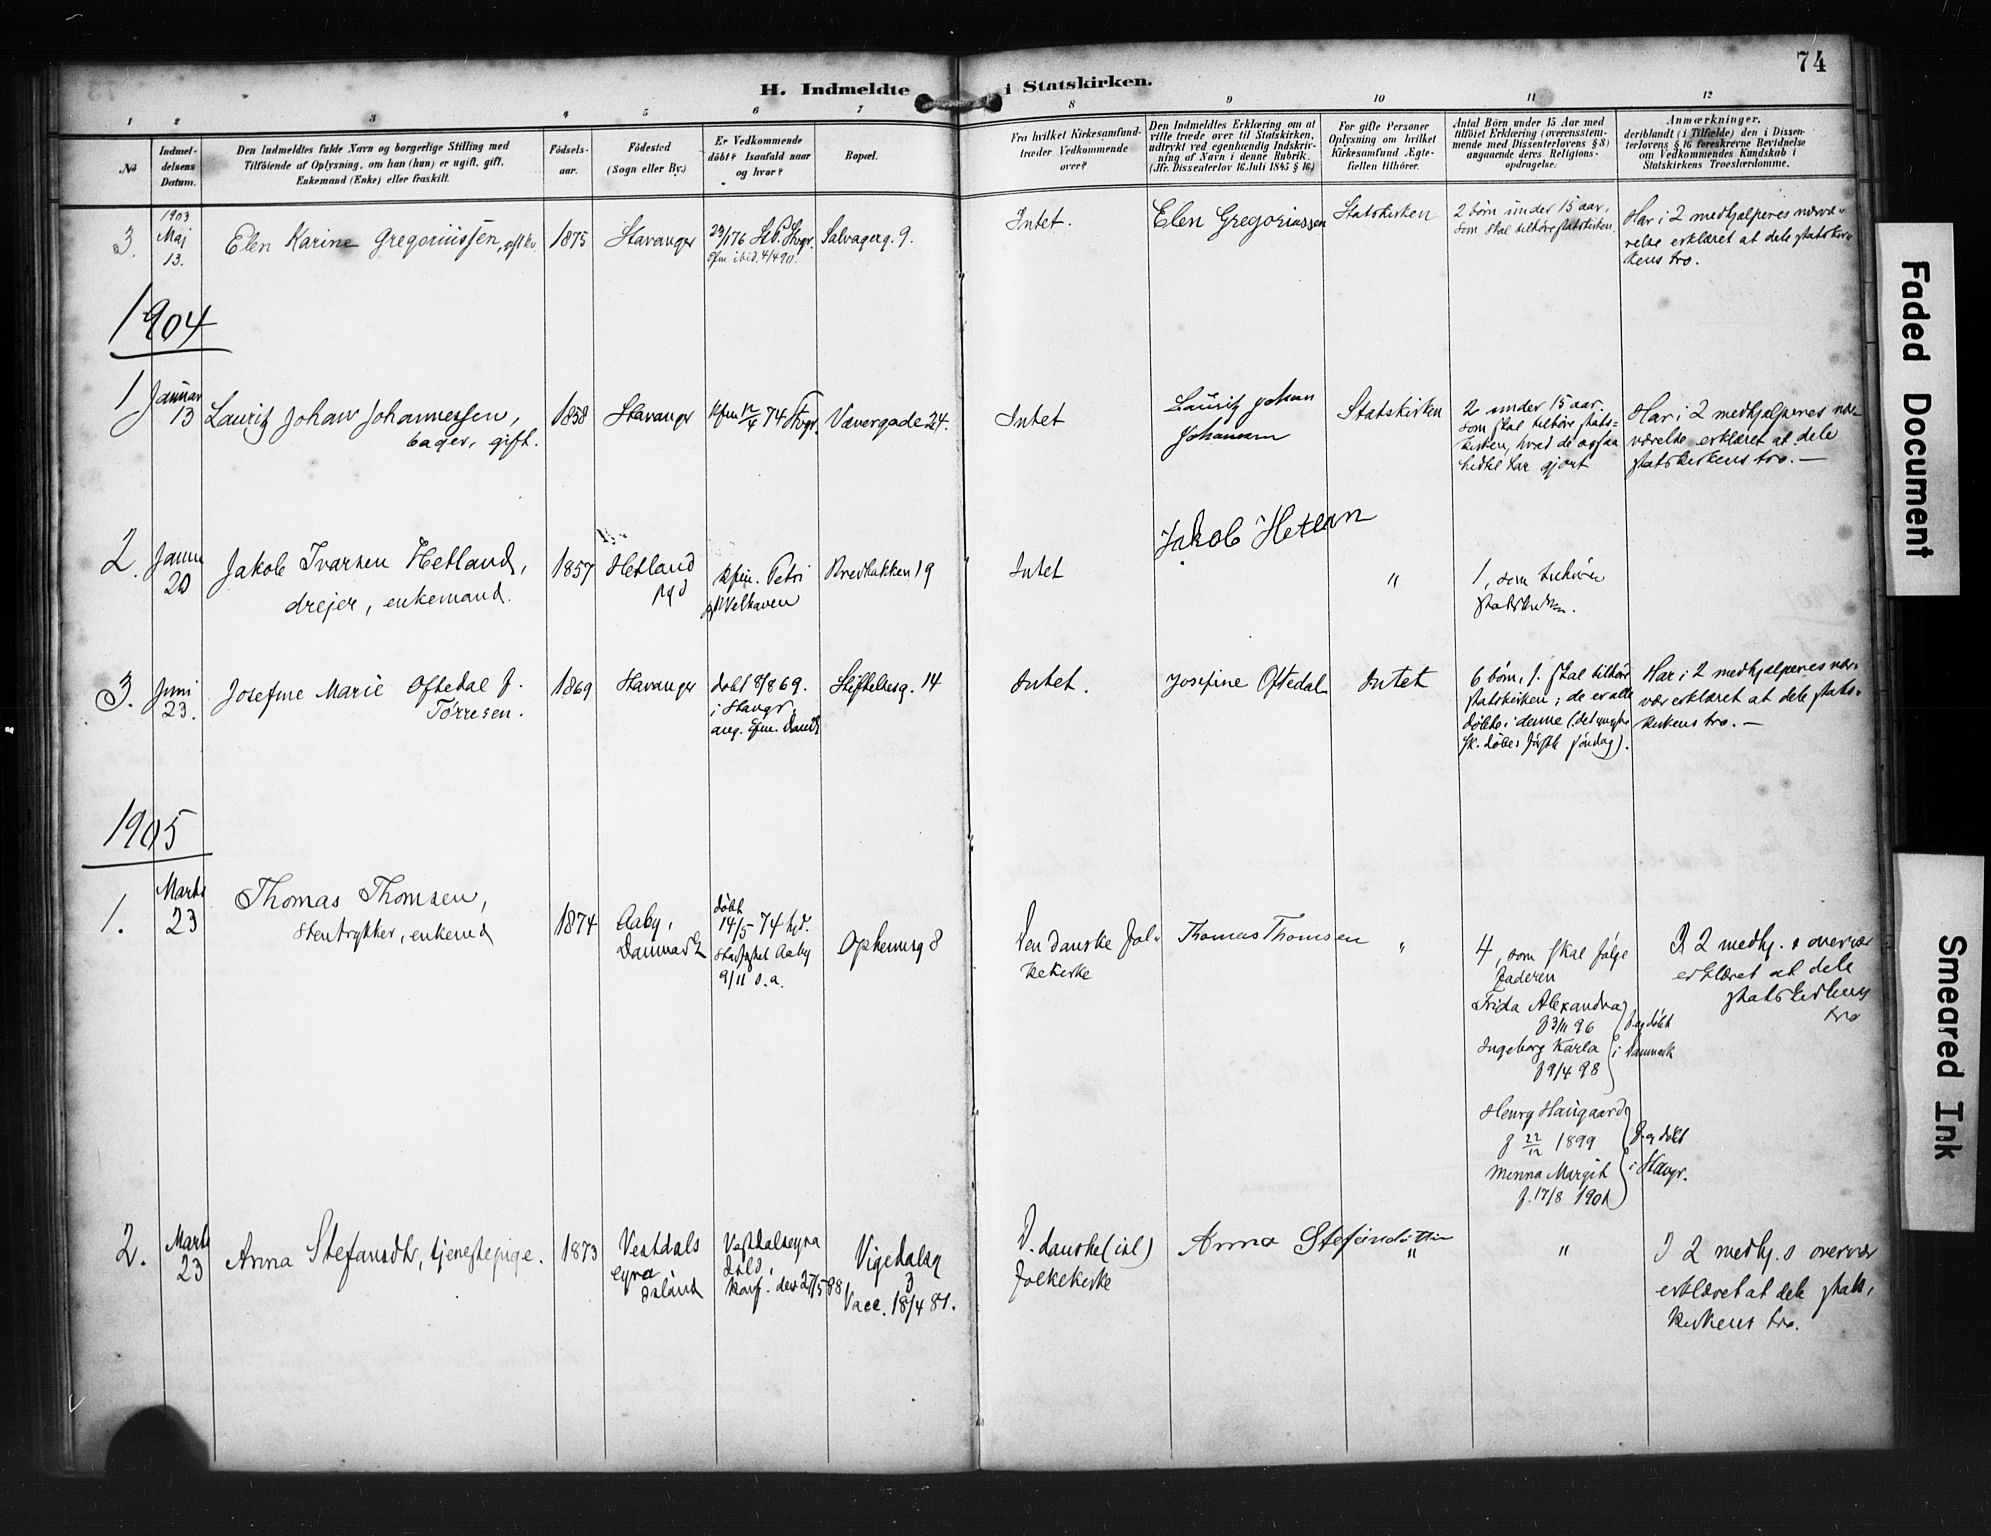 74
H. Indmeldte i Statskirken.
1 2 3 4 5 6 7 8 9 10 11 12
No
Indmel-
delsens
Datum.
Den Indmeldtes fulde Navn og borgerlige Stilling med
Tilföiende af Oplysning, om han (hun) er ugift, gift,
Enkemand (Enke) eller fraskilt.
Födsels-
aar.
Födested
(Sogn eller By.)
Er Vedkommende
döbt? Isaafald naar
og hvor?
Bopæl.
Fra hvilket Kirkesamfund
træder Vedkommende
over?
Den Indmeldtes Erklæring om at
ville træde over til Statskirken,
udtrykt ved egenhændig Indskriv-
ning af Navn i denne Rubrik.
(Jfr. Dissenterlov 16 Juli 1845 § 16.)
For gifte Personer
Oplysning om hvilket
Kirkesamfund Ægte-
fællen tilhörer.
Antal Börn under 15 Aar med
tilföiet Erklæring (overensstem-
mende med Dissenterlovens § 8)
angaaende deres Religions-
opdragelse.
Anmærkninger,
deriblandt (i Tilfælde) den i Dissen-
terlovens § 16 foreskrevne Bevidnelse
om Vedkommendes Kundskab i
Statskirkens Troeslærdomme.
3.
1903
Maj
13.
Elen Karine Gregoriussen,
1875
Stavanger
Salvagerg. 9.
Intet.
Elen Gregoriussen
Statskirken
2 børn under 15 aar,
som skal tilhøre statskirken.
Har i 2 medhjælperes nærvæ-
relse erklæret at dele statskir-
kens tro.
1904
1
Januar
13
Lauritz Johan Johannessen,
bager, gift.
1858
Stavanger
Kfm 12/4 74 Stvgr.
Vævergade 24.
Intet
Lauritz Johan
Johannesen
Statskirken
2 under 15 aar,
som skal tilhøre stats-
kirken, hvad de ogsaa
hidtil har gjort
Har i 2 medhjælperes nær-
værelse erklæret at dele
statskirkens tro. —
2.
Janu
20
Jakob Ivarsen Hetland,
drejer, enkemand.
1857
Hetland
pgd
Kfm. Petri
Welhaven
Bredbakken 19
Intet
Jakob Hetlan
"
1, som tilhører
statskirken.
3.
Juni
23.
Josefine Marie Oftedal f.
Tørresen.
1869
Stavanger
døbt 8/8 69.
i Stavgr.
Stiftelsesg. 14
Intet.
Josefine Oftedal
Intet
6 børn, s. skal tilhøre
statskirken; de er alle
døbte i denne (det yngste
sk. døbes første søndag).
Har i 2 medhjælperes nær-
vær erklæret at dele stats-
kirkens tro. —
1905
1.
Marts
23
Thomas Thomsen,
stentrykker, enkemd
1874
Aaby,
Danmark
døbt
14/5 74 hjd.
stadfæstet Aaby
9/11 s.a.
Opheimsg 8
Den danske Fol-
kekirke
Thomas Thomsen
"
4, som skal følge
faderen
Frida Alexandra
f 3/11 96
Ingeborg Karla
f 9/4 98
f. og døbt
i Danmark
Henry Haugaard
f 22/12 1899
Menna Margit
f. 17/8 1901
f. og døbt
i Stavgr.
I 2 medhj.s overvær
erklæret at dele
statskirkens
tro
2.
Marts
23
Anna Stefansdtr, tjenestepige.
1873
Vestdals
eyra
Island
Vestdalseyra
døbt,
konf. den 27/5 88
Vigedalsg
3
Vacc. 18/4 81.
D. danske (isl)
folkekirke
Anna Stefansdóttir
"
"
I 2 medhj.s overvær
erklæret at dele stats-
kirkens tro.
Faded Document
Smeared Ink